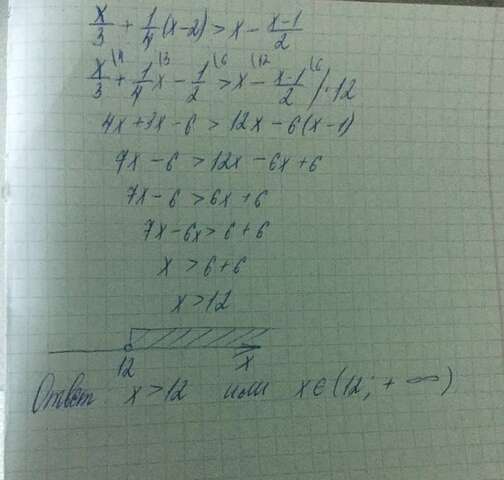 x/3 + 1/4(x-2) > x - x-1/2
x/3 \4 + 1/4 \3 x - 1/2 \6 > x \12 - x-1/2 \6 /·12
4x+3x-6 > 12x-6(x-1)
7x-6 > 12x-6x+6
7x-6 > 6x+6
7x-6x > 6+6
x > 6+6
x > 12
12 x
Ответ x > 12 или x∈(12; +∞)